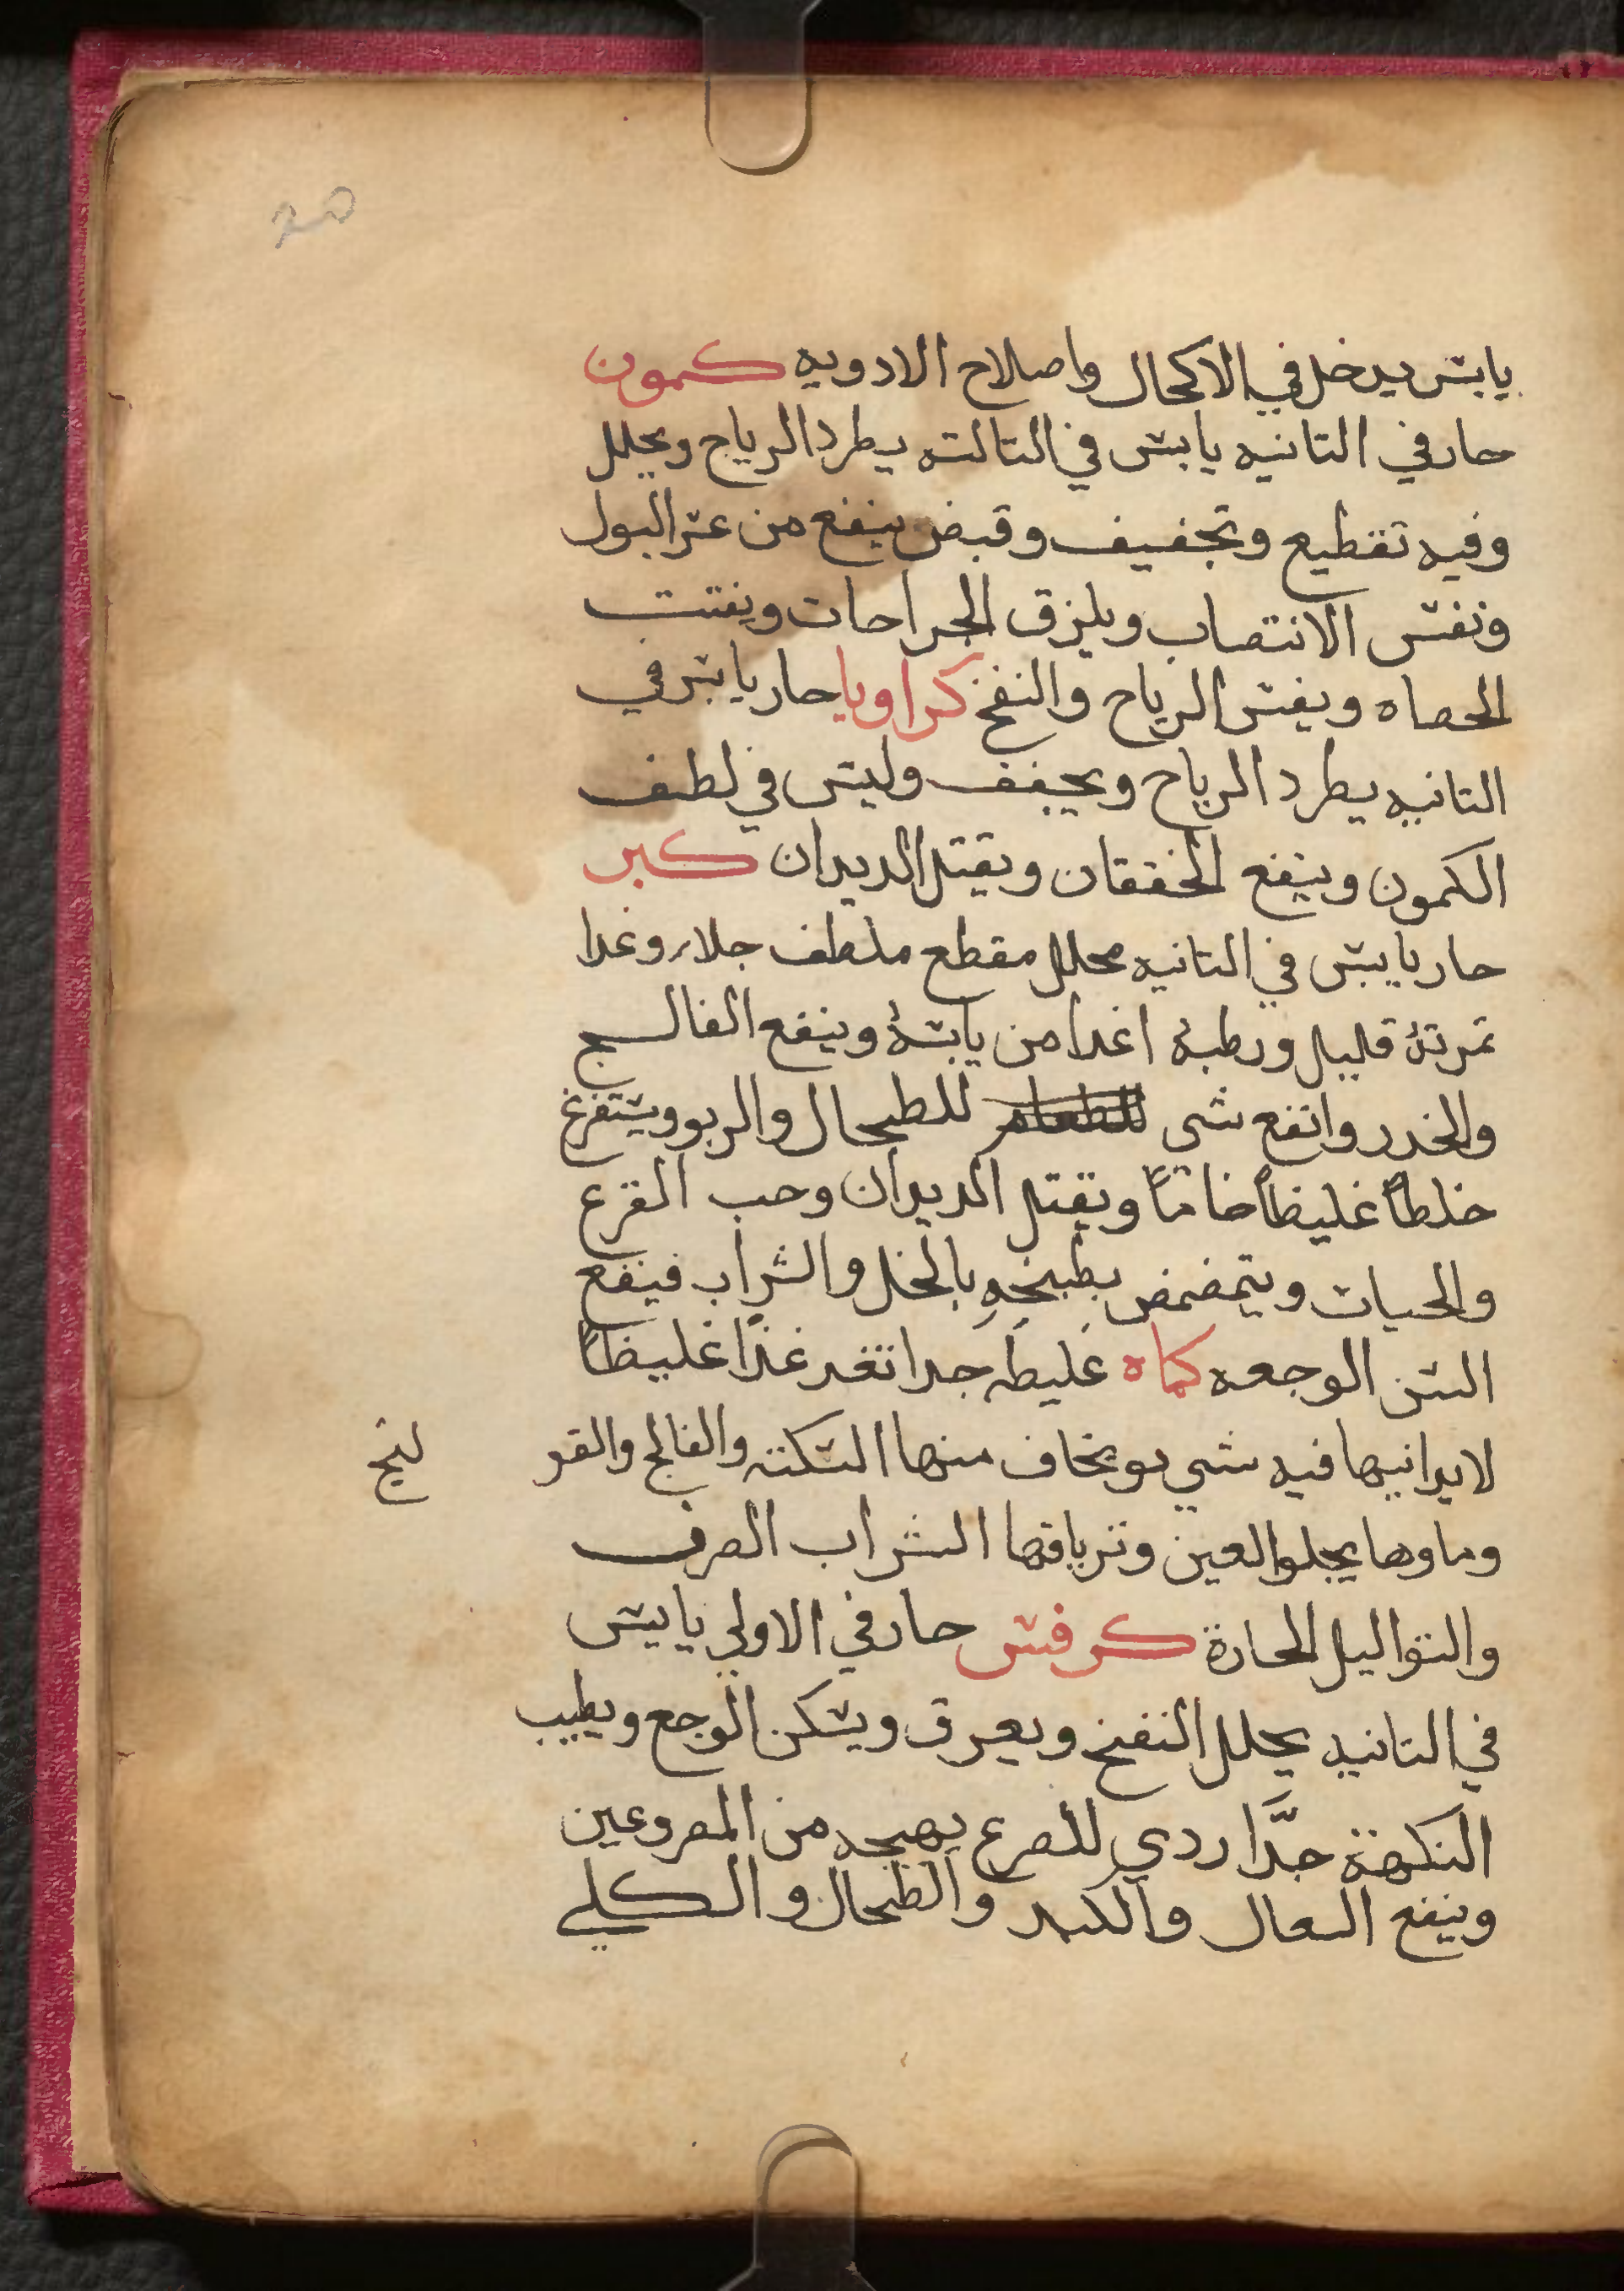 20
يابس يدخل في الاكحال واصلاح الادويه كمون
حار في التانيه يابس في التالته يطرد الرياح ويحلل
وفيه تقطيع وتجفيف وقبض ينفع من عسر البول
ونفس الانتصاب ويلزق الجراحات ويفتت
الحصاه ويفش الرياح والنفخ كراويا حار يابس في
التانيه يطرد الرياح ويجفف وليس في لطف
الكمون وينفع الخفقان ويقتل الديدان كبر
حار يابس في التانيه محلل مقطع ملطف جلاء وغدا
تمرته قليل ورطبه اغدا من يابسه وينفع الفالج
والخدر وانفع شي للطعام للطحال والربو ويستفرغ
خلطاً غليظاً خاماً ويقتل الديدان وحب القرع
والحيات ويتمضمض بطبيخه بالخل والشراب فينفع
السن الوجعه كماه غليطه جدا تغد غذا غليظاً
لايدانيها فيه شي يو يخاف منها السكته والفالج والقو
لنج
وماوها يجلوا العين وترياقها الشراب الصرف
والتواليل الحارة كرفس حار في الاولي يابس
في التانيه يحلل النفخ ويعرق ويسكن الوجع ويطيب
النكهة جدَّا ردي للصرع يهيجه من المصروعين
وينفع السعال والكبد والطحال والكلي